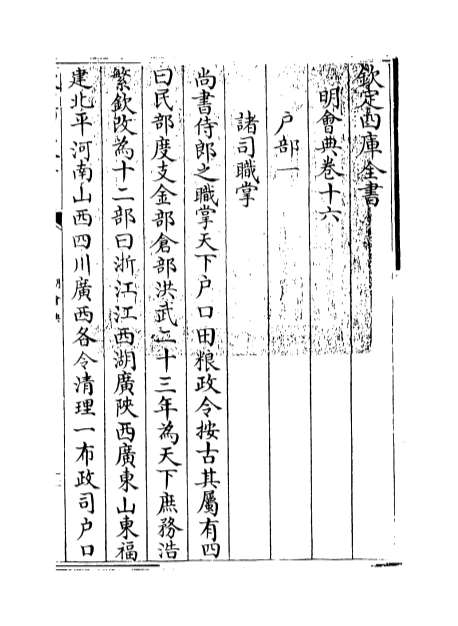 欽定四庫全書
明會典卷十六
户部一
諸司職掌
尚書侍郎之職掌天下户口田粮政令按古其屬有四
曰民部度支金部倉部洪武二十三年為天下庶務浩
繁欽改為十二部曰浙江江西湖廣陜西廣東山東福
建北平河南山西四川廣西各令清理一布政司户口